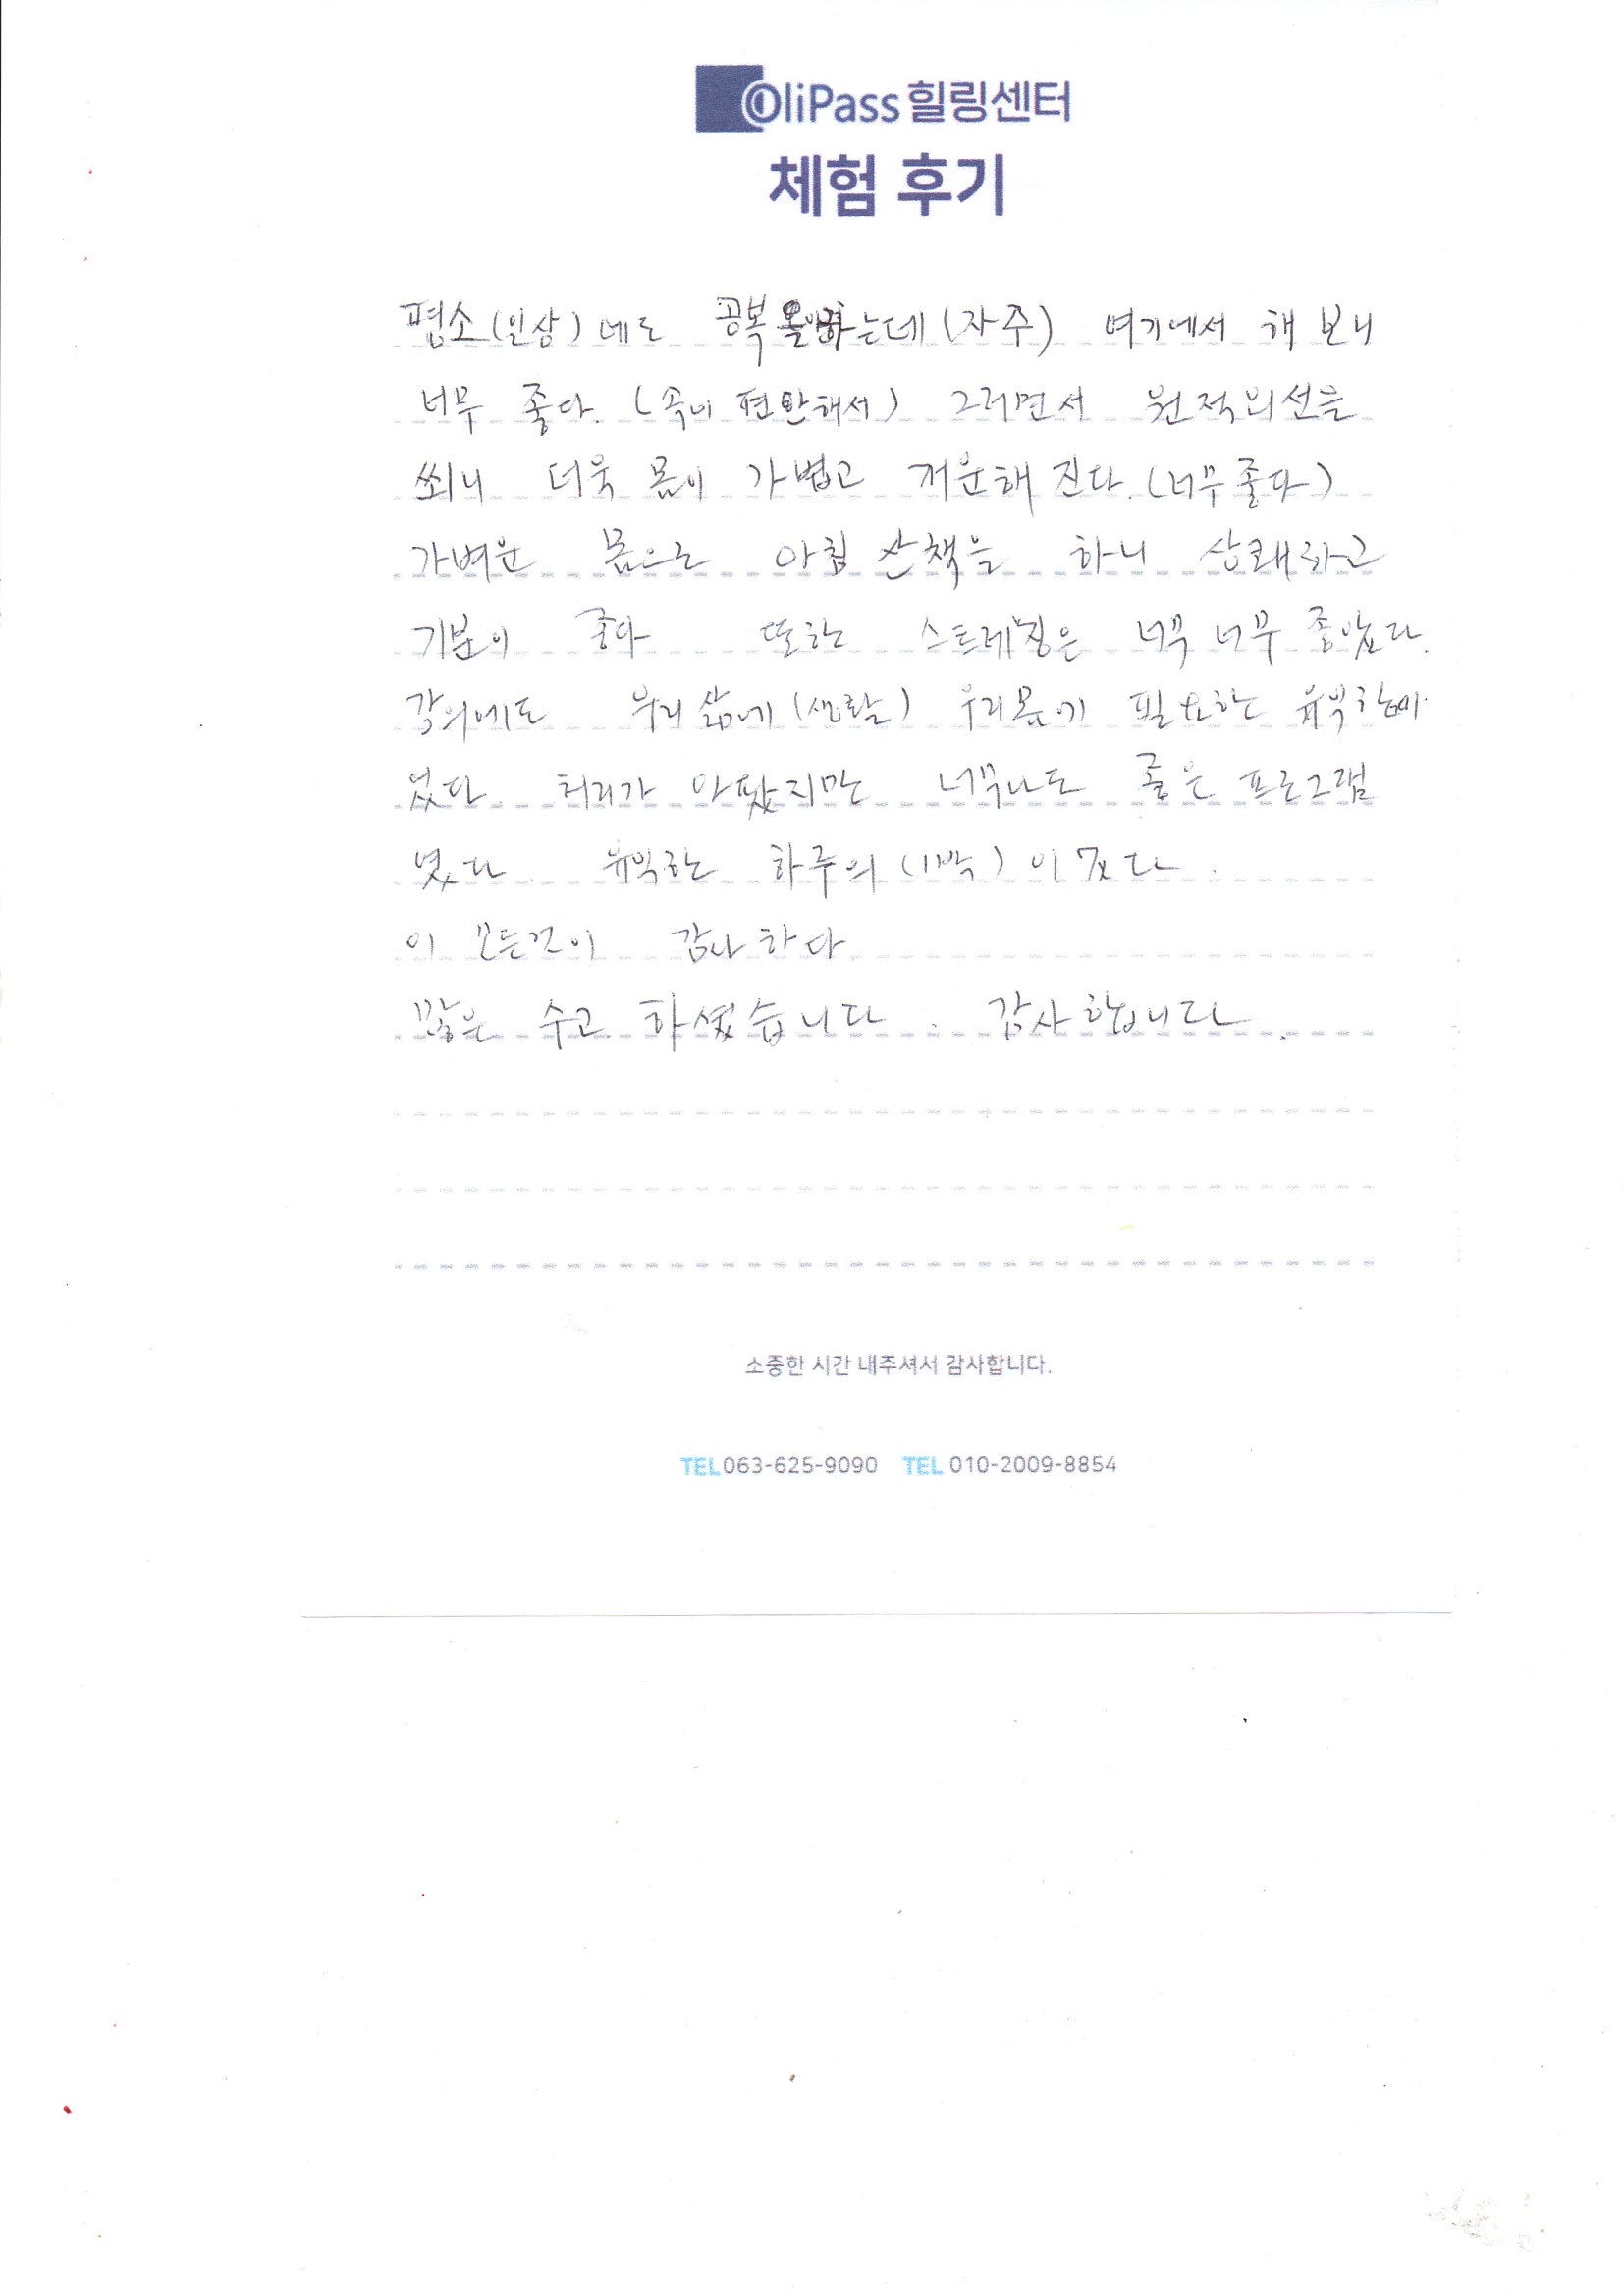 OliPass 힐링센터
체험 후기
평소(일상)에도 공복을 하는데(자주) 여기에서 해 보니
너무 좋다. (속이 편안해서) 그러면서 원적외선을
쐬니 더욱 몸이 가볍고 개운해 진다. (너무 좋다)
가벼운 몸으로 아침 산책을 하니 상쾌하고
기분이 좋다 또한 스트레칭은 너무 너무 좋았다.
강의에도 우리 삶에(생활) 우리몸에 필요한 유익함이
었다. 허리가 아팠지만 너무나도 좋은 프로그램
였다. 유익한 하루의 (1박) 이였다.
이 모든것이 감사하다.
많은 수고 하셨습니다. 감사합니다.
소중한 시간 내주셔서 감사합니다.
TEL 063-625-9090 TEL 010-2009-8854